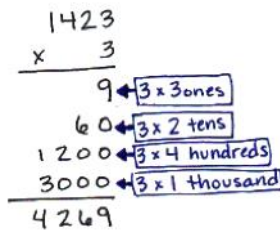 1423
x 3
9 3 x 3 ones
60 3 x 2 tens
1200 3 x 4 hundreds
3000 3 x 1 thousand
4269